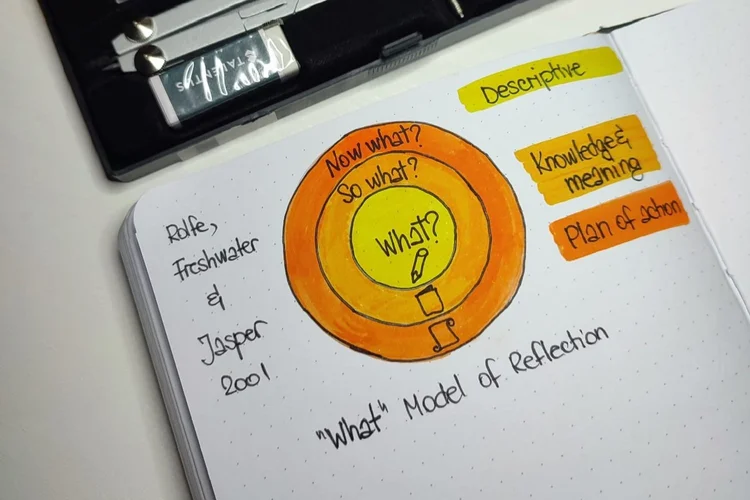 TALENTUS
Descriptive
Now what?
So what?
What?
Knowledge &
meaning
Plan of action
Rolfe,
Freshwater
&
Jasper
2001
"What" Model of Reflection